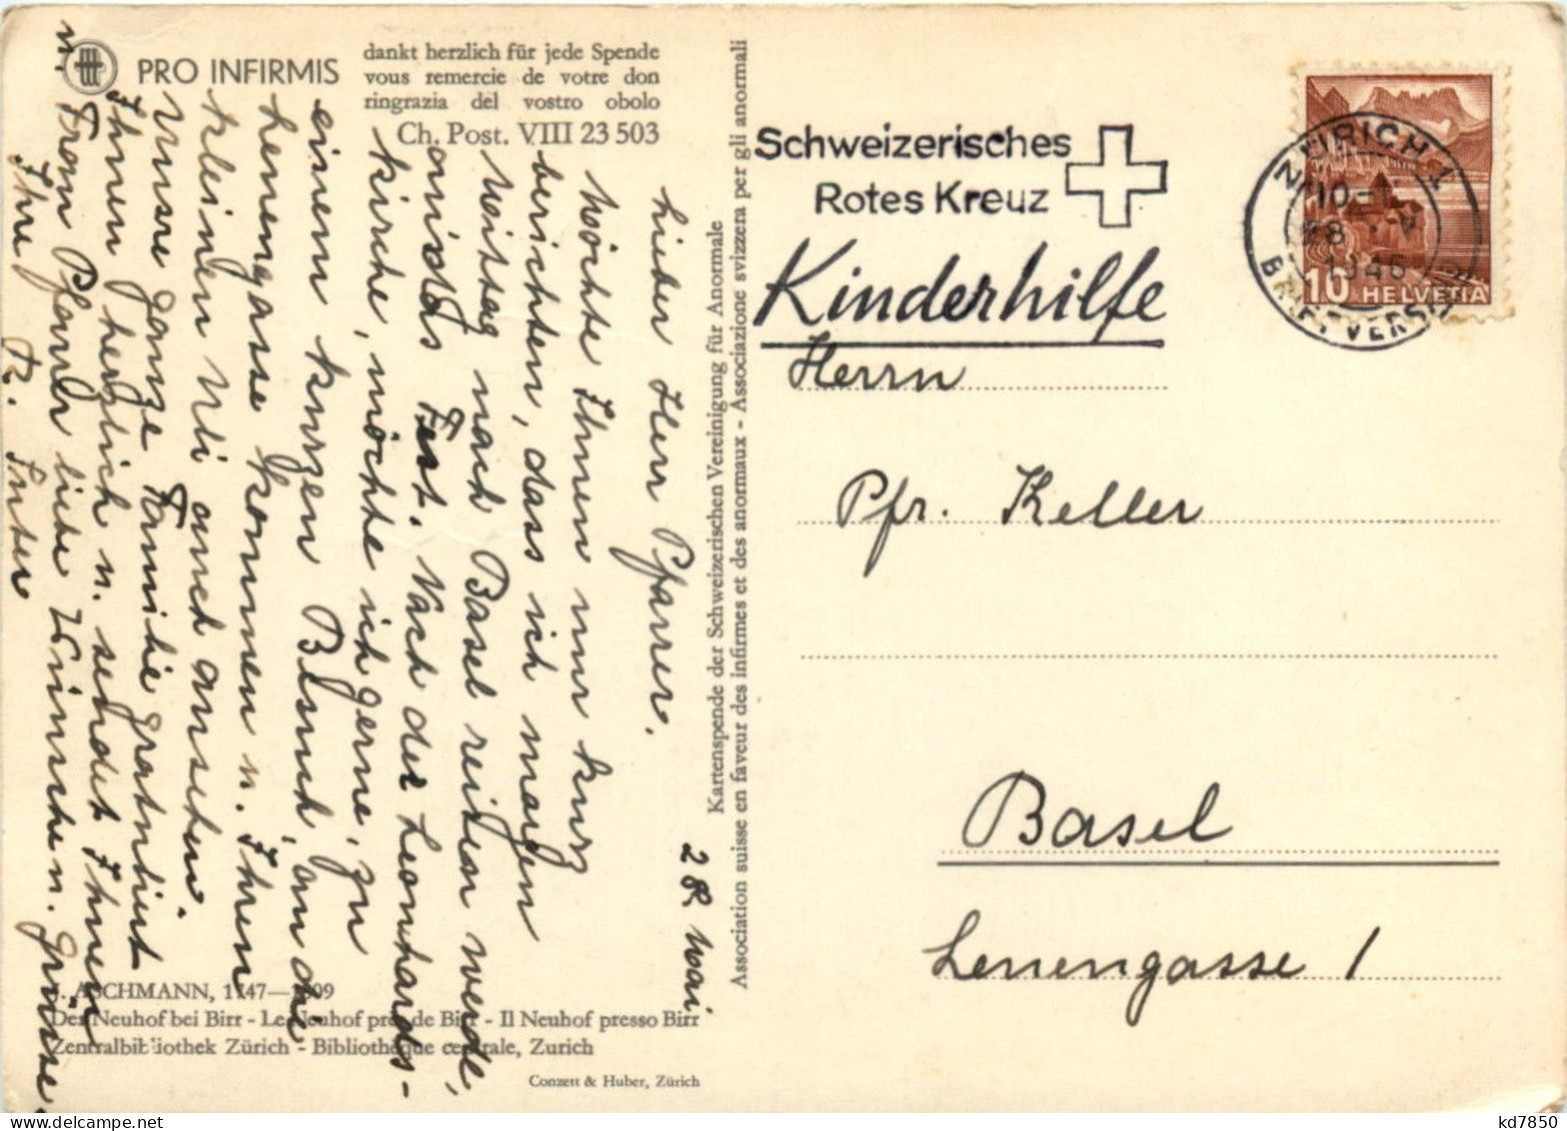 PRO INFIRMIS
dankt herzlich für jede Spende
vous remercie de votre don
ringrazia del vostro obolo
Ch. Post. VIII 23 503
28 Mai
Lieber Herr Pfarrer.
Möchte Ihnen nur kurz
berichten, dass ich morgen
Mittag nach Basel reisen werde,
an das Fest. Nach der Leonhards-
kirche, möchte ich gerne, zu
einem kurzen Besuch, an die
Leuengasse kommen u. Ihren
kleinen Ueli auch ansehen.
Unsre ganze Familie gratuliert
Ihnen herzlich u. sendet Ihnen
u. Frau Pfarrer liebe Wünsche u. Grüsse.
Ihre R. Suter
ASCHMANN, 1747—1809
Der Neuhof bei Birr - Le Neuhof près de Birr - Il Neuhof presso Birr
Zentralbibliothek Zürich - Bibliothèque centrale, Zurich
Conzett & Huber, Zürich
Kartenspende der Schweizerischen Vereinigung für Anormale
Association suisse en faveur des infirmes et des anormaux - Associazione svizzera per gli anormali
Schweizerisches
Rotes Kreuz
Kinderhilfe
ZÜRICH 1
10-
28 V
1946
BRIEFVERSAND
10 HELVETIA
Herrn
Pfr. Keller
Basel
Leuengasse 1
kd7850